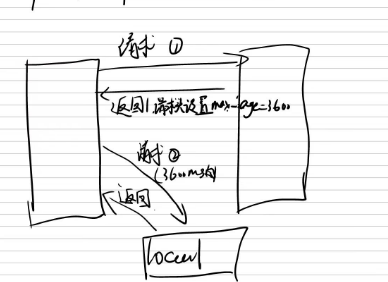 请求 ①
返回 请求头设置max-age=3600
请求 ②
(3600ms内)
返回
local